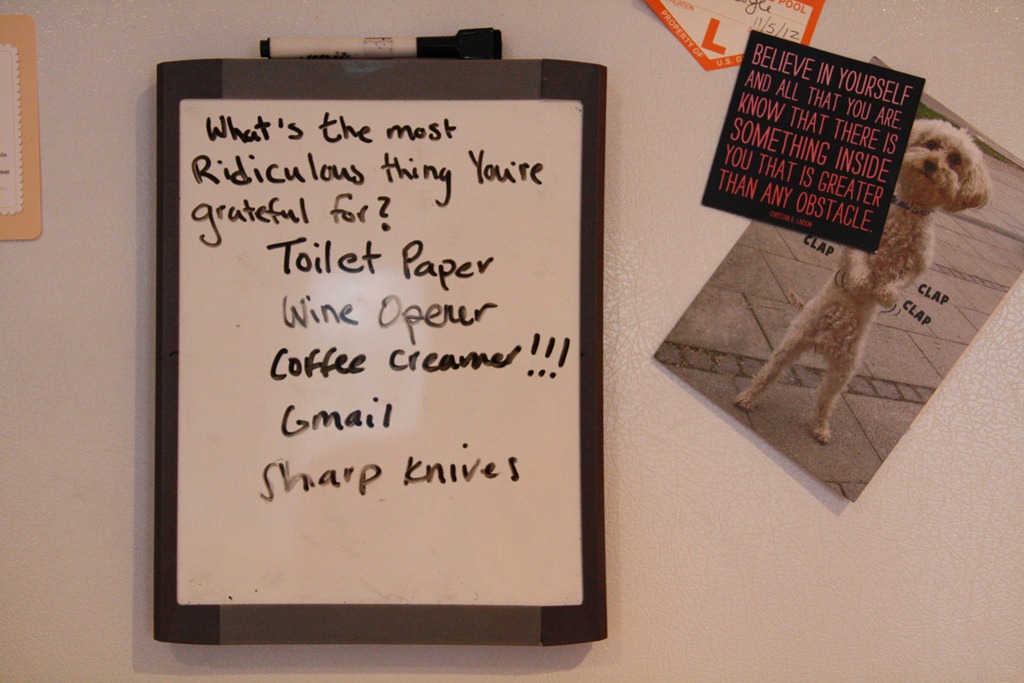 What's the most
Ridiculous thing You're
grateful for?
Toilet Paper
Wine Opener
Coffee Creamer!!!
Gmail
Sharp Knives
POOL
11/5/12
L
PROPERTY OF
U.S.
BELIEVE IN YOURSELF
AND ALL THAT YOU ARE
KNOW THAT THERE IS
SOMETHING INSIDE
YOU THAT IS GREATER
THAN ANY OBSTACLE.
CHRISTIAN D. LARSON
CLAP
CLAP
CLAP